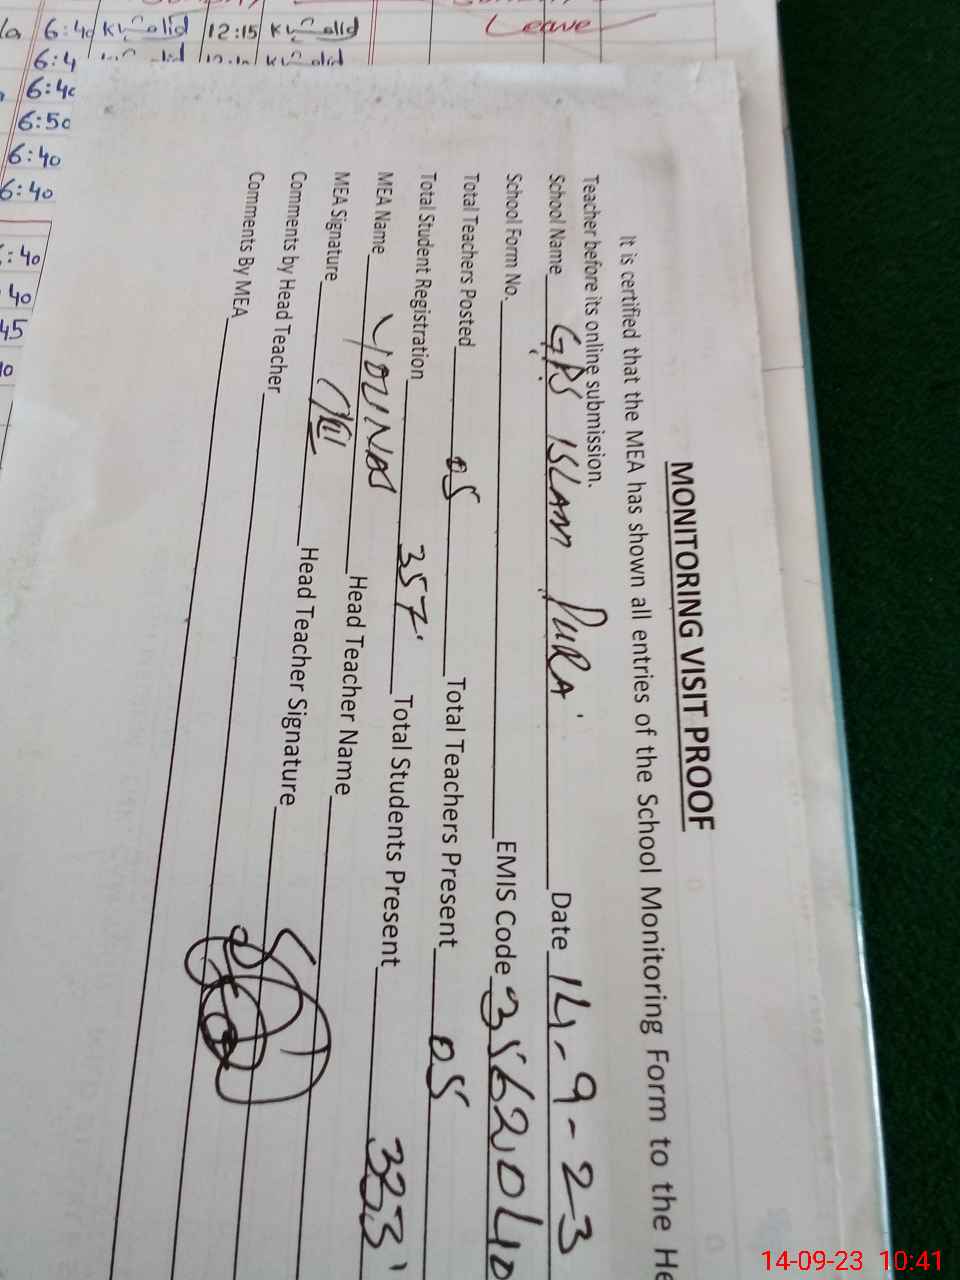 6:40 Khalid 12:15 Khalid Leave
6:4
6:40
6:50
6:40
6:40
:40
40
45
MONITORING VISIT PROOF
It is certified that the MEA has shown all entries of the School Monitoring Form to the He
Teacher before its online submission.
School Name GPS ISLAM PURA Date 14-9-23
School Form No. EMIS Code
Total Teachers Posted 05 Total Teachers Present 05
Total Student Registration 357 Total Students Present 333
MEA Name YOUNAS Head Teacher Name
MEA Signature Head Teacher Signature
Comments by Head Teacher
Comments By MEA
14-09-23 10:41